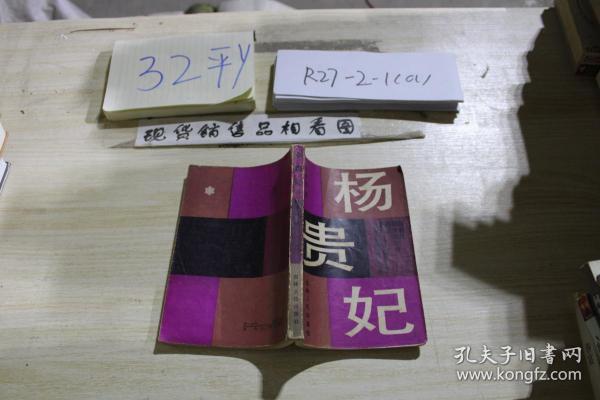 32平y
R27-2-1(01)
现货销售品相看图
杨
贵
妃
孔夫子旧书网
www.kongfz.com